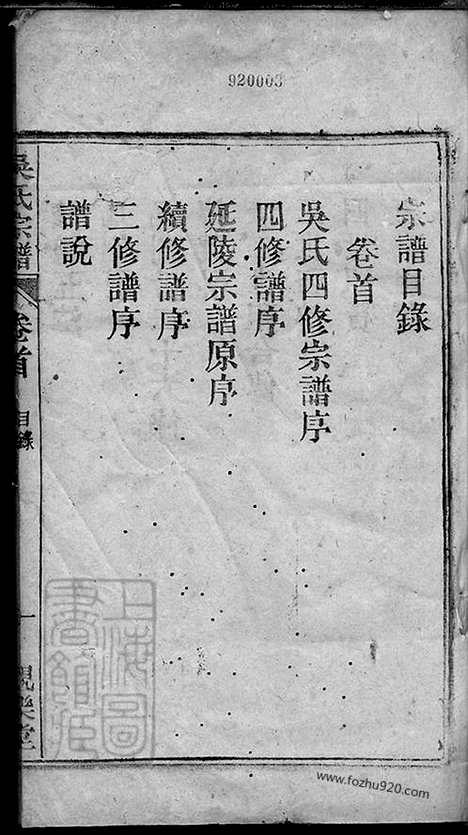 920003
宗譜目錄
卷首
吳氏四修宗譜序
四修譜序
延陵宗譜原序
續修譜序
三修譜序
譜說
吳氏宗譜
卷首
目錄
一
親樂堂
上海圖書館藏
www.fozhu920.com